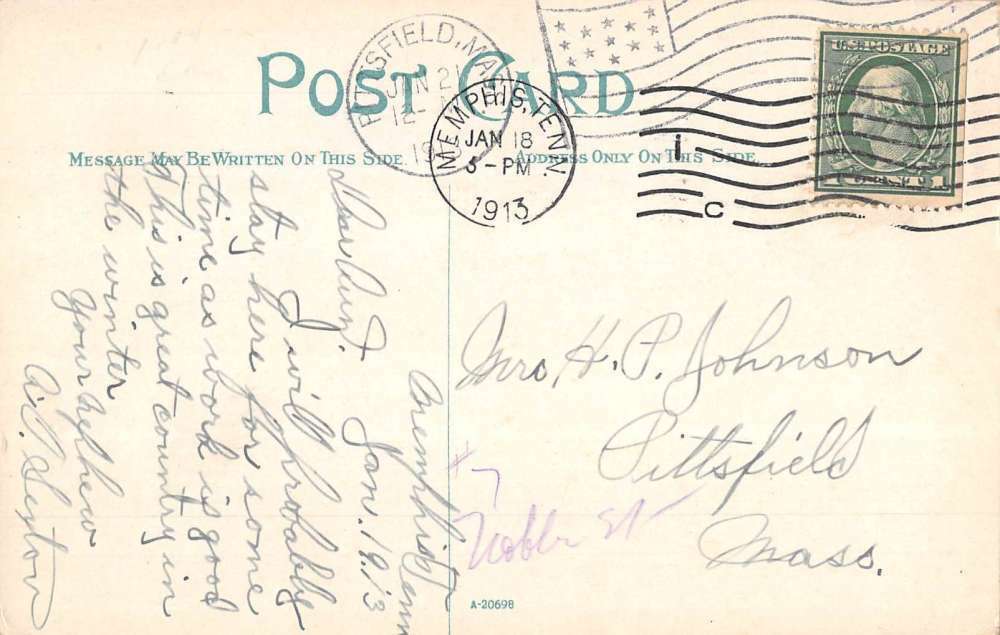 POST CARD
MESSAGE MAY BE WRITTEN ON THIS SIDE.
ADDRESS ONLY ON THIS SIDE
PITTSFIELD, MA
JAN 21
12
19
MEMPHIS, TENN.
JAN 18
5-PM
1913
1
C
U.S. POSTAGE
1 CENT 1
Memphis Tenn
Jan. 19.13
Dear Aunt.
I will probably
stay here for some
time as work is good
This is great country in
the winter
Your nephew
A. Sexton
Mrs. H. P. Johnson
Pittsfield
Mass.
#7
Noble St
A-20698